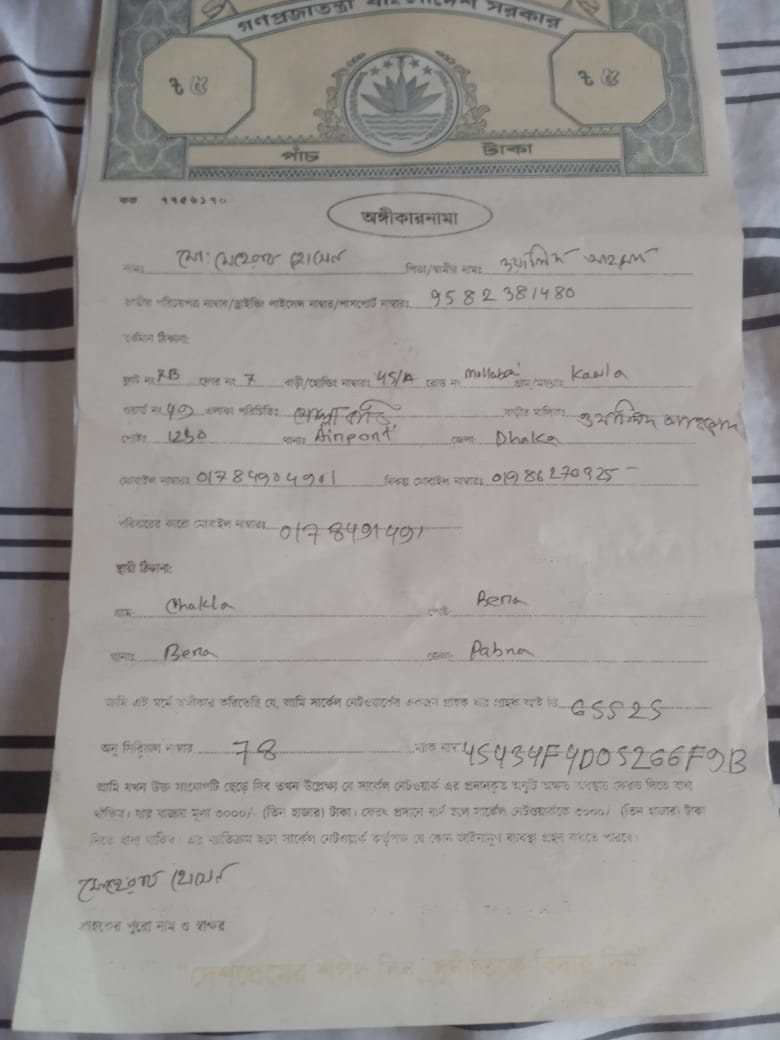 গণপ্রজাতন্ত্রী বাংলাদেশ সরকার
৳ ৫ ৳ ৫
পাঁচ টাকা
কক ৭৭৫৬২৭০
অঙ্গীকারনামা
নামঃ মো: মেহেরাজ হোসেন পিতা/স্বামীর নামঃ ওয়ালিদ আহমেদ
জাতীয় পরিচয়পত্র নাম্বার/ড্রাইভিং লাইসেন্স নাম্বার/পাসপোর্ট নাম্বারঃ 9582381480
বর্তমান ঠিকানা:
ফ্লাট নং 7B ফ্লোর নং 7 বাড়ী/হোল্ডিং নাম্বারঃ 45/A রোড নং Mollaba গ্রাম/মহল্লাঃ Kawla
ওয়ার্ড নং 49 এলাকা পরিচিতিঃ বাড়ীর মালিকঃ ওয়ালিদ আহমেদ
পোষ্টঃ 1230 থানাঃ Airport জেলাঃ Dhaka
মোবাইল নাম্বারঃ 01784904901 বিকল্প মোবাইল নাম্বারঃ 01986270925
পরিবারের কারো মোবাইল নাম্বারঃ 0178491491
স্থায়ী ঠিকানা:
গ্রামঃ Chakla পোষ্টঃ Bera
থানাঃ Bera জেলাঃ Pabna
আমি এই মর্মে অঙ্গীকার করিতেছি যে, আমি সার্কেল নেটওয়ার্কের একজন গ্রাহক যার গ্রাহক আই ডি 65525
অনু সিরিয়াল নাম্বার 78 ম্যাক নাম্বার 45434F4D05266F9B
আমি যখন উক্ত সংযোগটি ছেড়ে দিব তখন উল্লেখ্য যে সার্কেল নেটওয়ার্ক এর প্রদানকৃত অনুটি অক্ষত অবস্থায় ফেরত দিতে বাধ্য
থাকিব। যার বাজার মূল্য ৩০০০/- (তিন হাজার) টাকা। ফেরৎ প্রদানে ব্যর্থ হলে সার্কেল নেটওয়ার্ককে ৩০০০/ (তিন হাজার) টাকা
দিতে বাধ্য থাকিব। এর ব্যতিক্রম হলে সার্কেল নেটওয়ার্ক কর্তৃপক্ষ যে কোন আইনানুগ ব্যবস্থা গ্রহণ করতে পারবে।
মেহেরাজ হোসেন
গ্রাহকের পুরো নাম ও স্বাক্ষর
"দেশপ্রেমের শপথ নিন, দুর্নীতিকে বিদায় দিন"